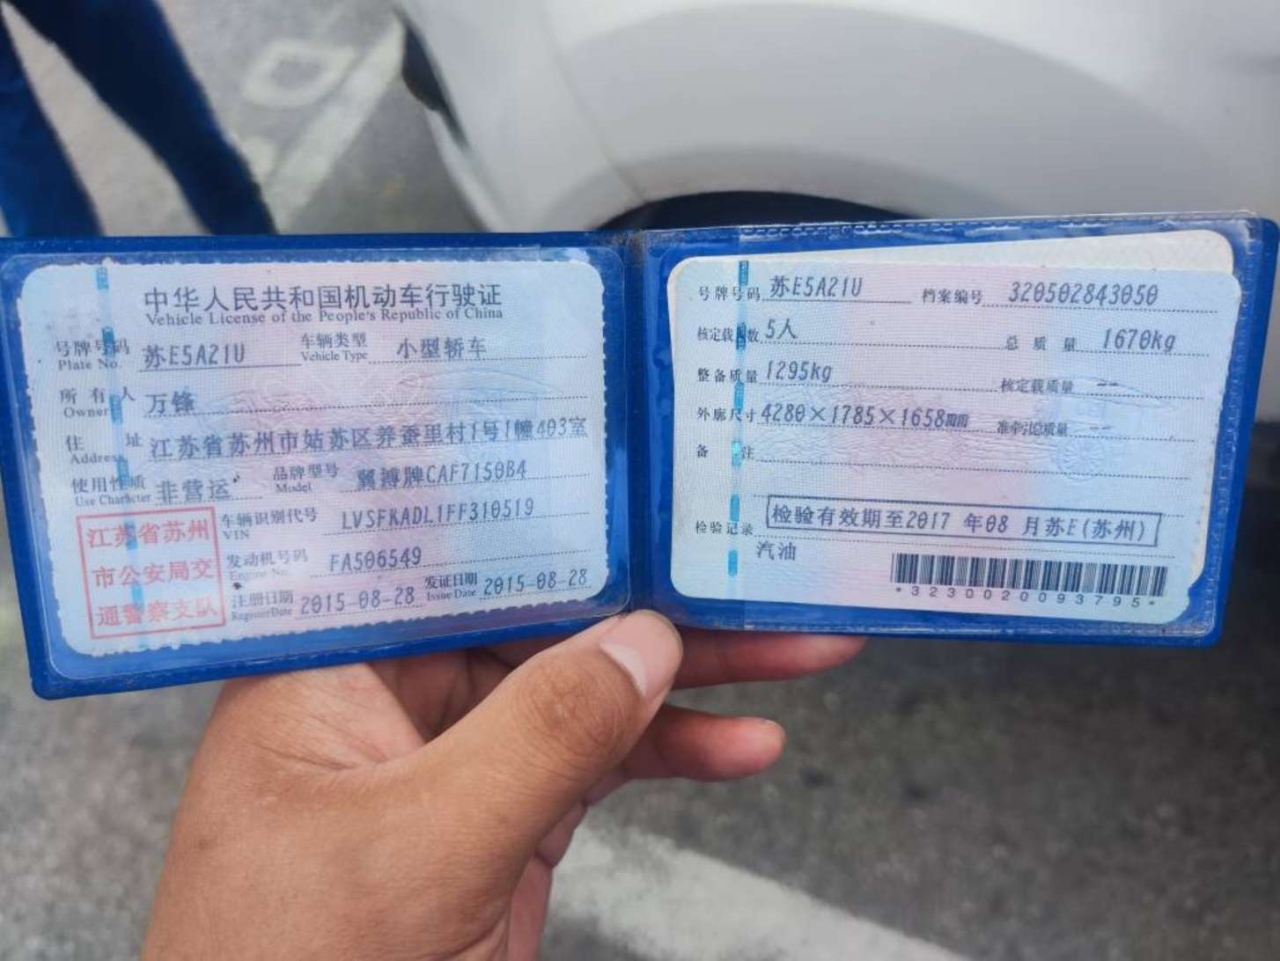 中华人民共和国机动车行驶证
Vehicle License of the People's Republic of China
号牌号码 苏E5A21U 车辆类型 小型轿车
Plate No. Vehicle Type
所有人 万锋
Owner
住址 江苏省苏州市姑苏区养蚕里村1号1幢403室
Address
使用性质 非营运 品牌型号 翼搏牌CAF7150B4
Use Character Model
江苏省苏州
市公安局交
通警察支队
车辆识别代号 LVSFKADL1FF310519
VIN
发动机号码 FA506549
Engine No.
注册日期 2015-08-28 发证日期 2015-08-28
Register Date Issue Date
号牌号码 苏E5A21U 档案编号 320502843050
核定载人数 5人 总质量 1670kg
整备质量 1295kg 核定载质量 --
外廓尺寸 4280×1785×1658mm 准牵引总质量 --
备注
检验记录 检验有效期至2017 年08 月苏E(苏州)
汽油
*3230020093795*